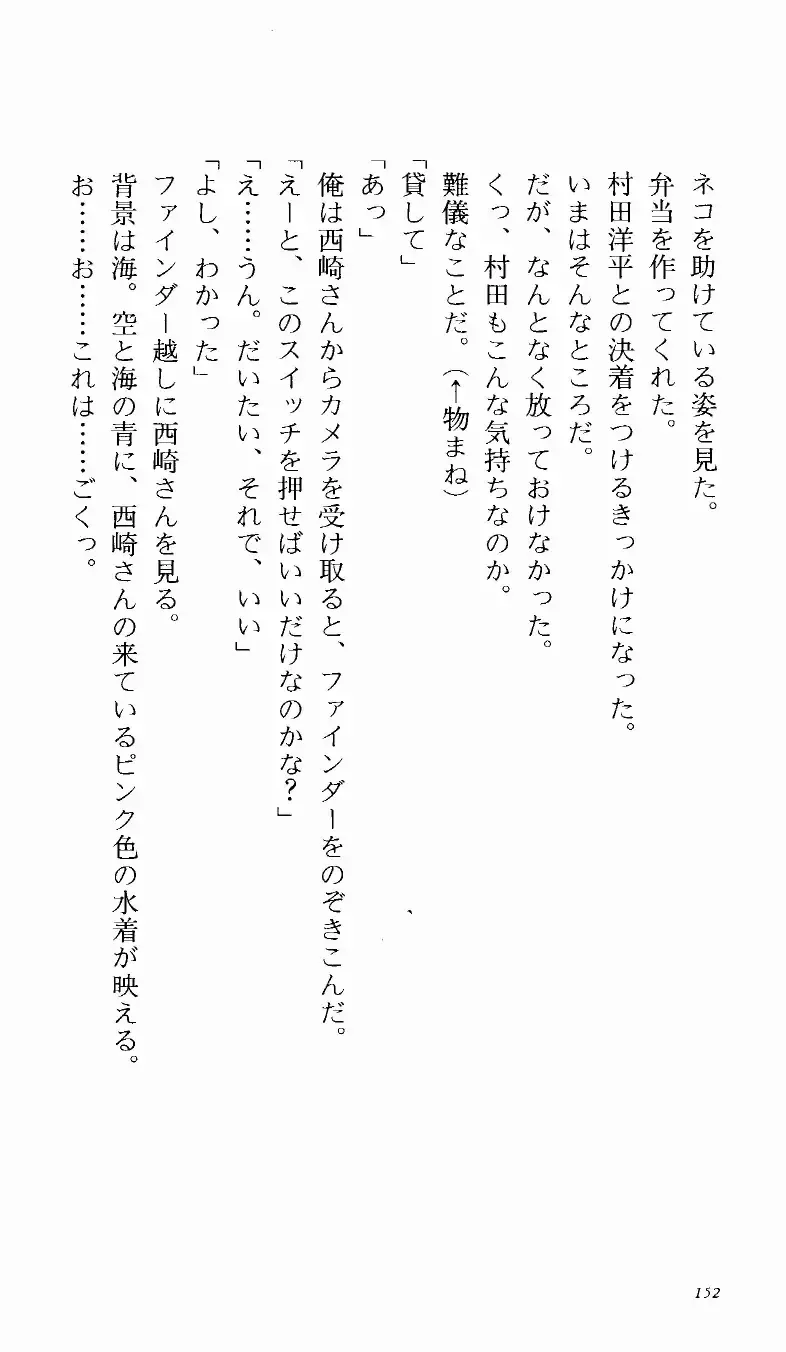 ネコを助けている姿を見た。
弁当を作ってくれた。
村田洋平との決着をつけるきっかけになった。
いまはそんなところだ。
だが、なんとなく放っておけなかった。
くっ、村田もこんな気持ちなのか。
難儀なことだ。（←物まね）
「貸して」
「あっ」
俺は西崎さんからカメラを受け取ると、ファインダーをのぞきこんだ。
「えーと、このスイッチを押せばいいだけなのかな？」
「え……うん。だいたい、それで、いい」
「よし、わかった」
ファインダー越しに西崎さんを見る。
背景は海。空と海の青に、西崎さんの来ているピンク色の水着が映える。
お……お……これは……ごくっ。
152